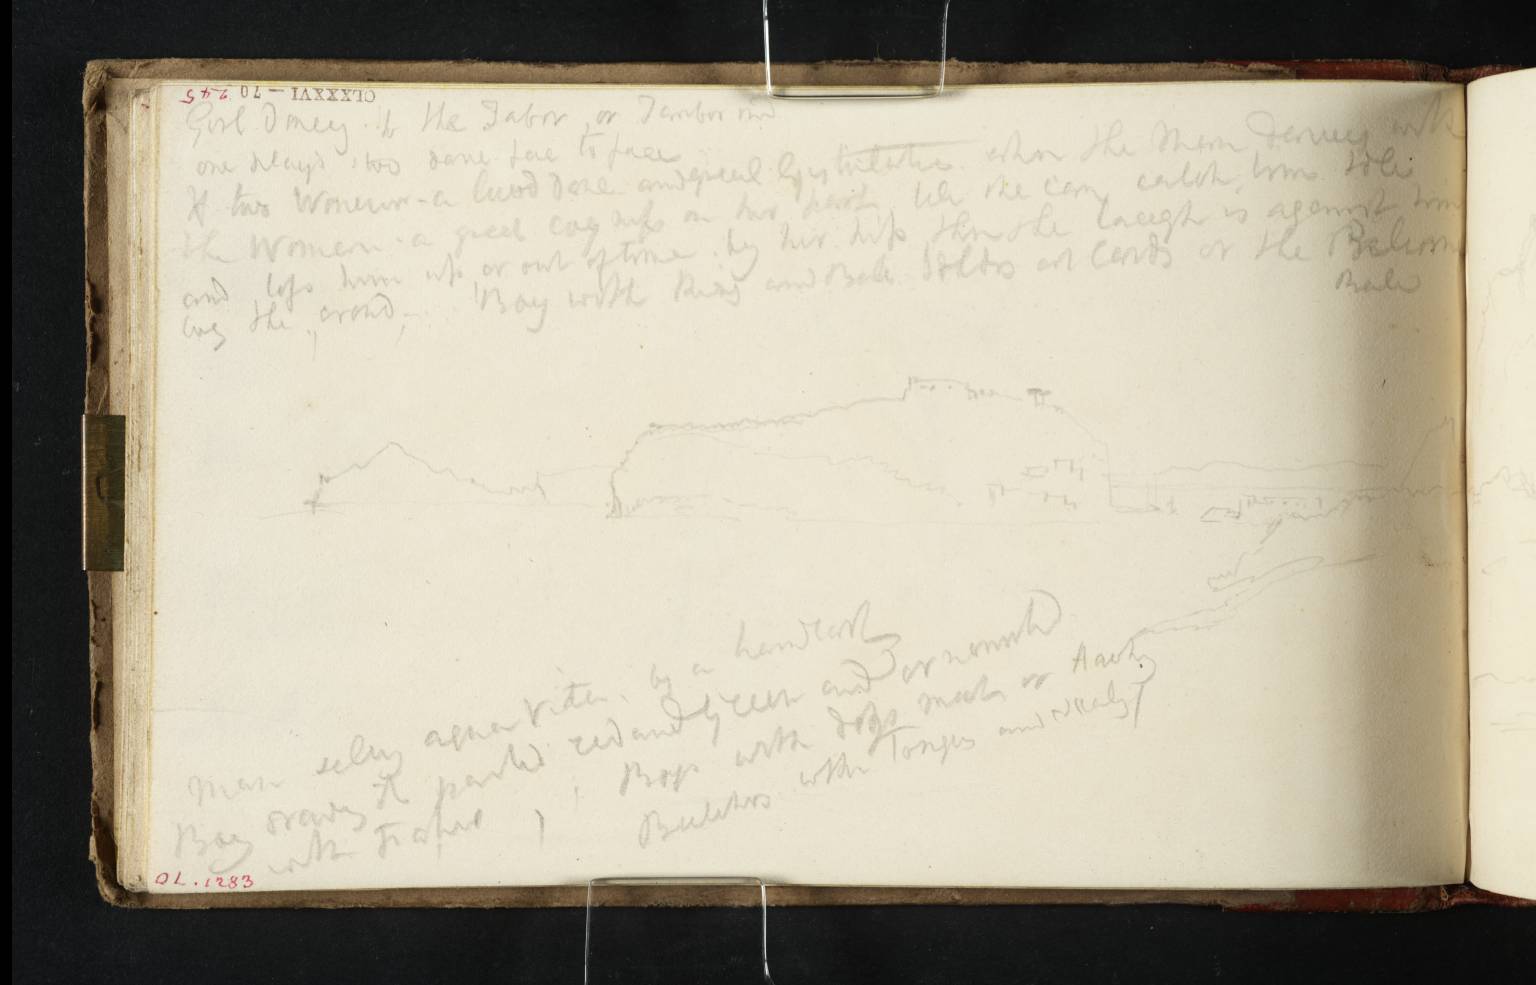 CLXXXVI — 70 245
Girl Dancg to the Tabor or Tamborine
one plays two dance face to face
If two Women - a lewd Dance and great Gesticulation when the Man Dancing with
the Women a great on her part till she can catch him
and lifts him up or out of time by her hip then the laugh is against him
by the crowd. Boy with Ring and Ball Soldiers at Cards or the
Balls
Man selling aqua Vita by a handcart
Boy drawg it painted red and Green and ornamented
with , Boys with dogs meat or
Butchers with Tongues and
DL. 1283